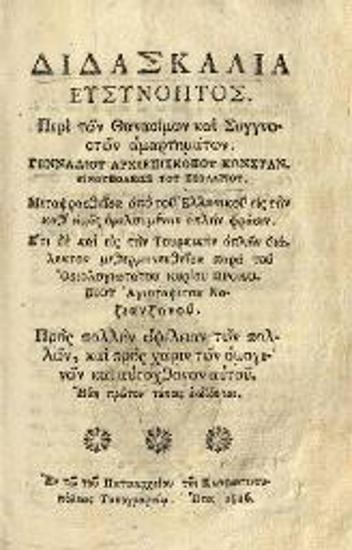 ΔΙΔΑΣΚΑΛΙΑ
ΕΥΣΥΝΟΠΤΟΣ.
Περὶ τῶν Θανασίμων καὶ Συγγνω-
στῶν ἁμαρτημάτων.
ΓΕΝΝΑΔΙΟΥ ΑΡΧΙΕΠΙΣΚΟΠΟΥ ΚΩΝΣΤΑΝ.
ΤΙΝΟΥΠΟΛΕΩΣ ΤΟΥ ΣΧΟΛΑΡΙΟΥ.
Μεταφρασθεῖσα ἀπὸ τοῦ Ἑλληνικοῦ εἰς τὴν
καθ' ἡμᾶς ὁμιλουμένην ἁπλῆν φράσιν.
Ἔτι δὲ καὶ εἰς τὴν Τουρκικὴν ἁπλῆν διά-
λεκτον μεθερμηνευθεῖσα παρὰ τοῦ
Ὁσιολογιωτάτου κυρίου ΠΡΟΚΟ-
ΠΙΟΥ Ἁγιοταφίτου Να-
ζιανζηνοῦ.
Πρὸς πολλὴν ὠφέλειαν τῶν πολ-
λῶν, καὶ πρὸς χάριν τῶν ὁμογε-
νῶν καὶ αὐτοχθόνων αὐτοῦ.
Ἤδη πρῶτον τύποις ἐκδίδοται.
Ἐν τῷ τοῦ Πατριαρχείου τῆς Κωνσταντινου-
πόλεως Τυπογραφείῳ. Ἔτει